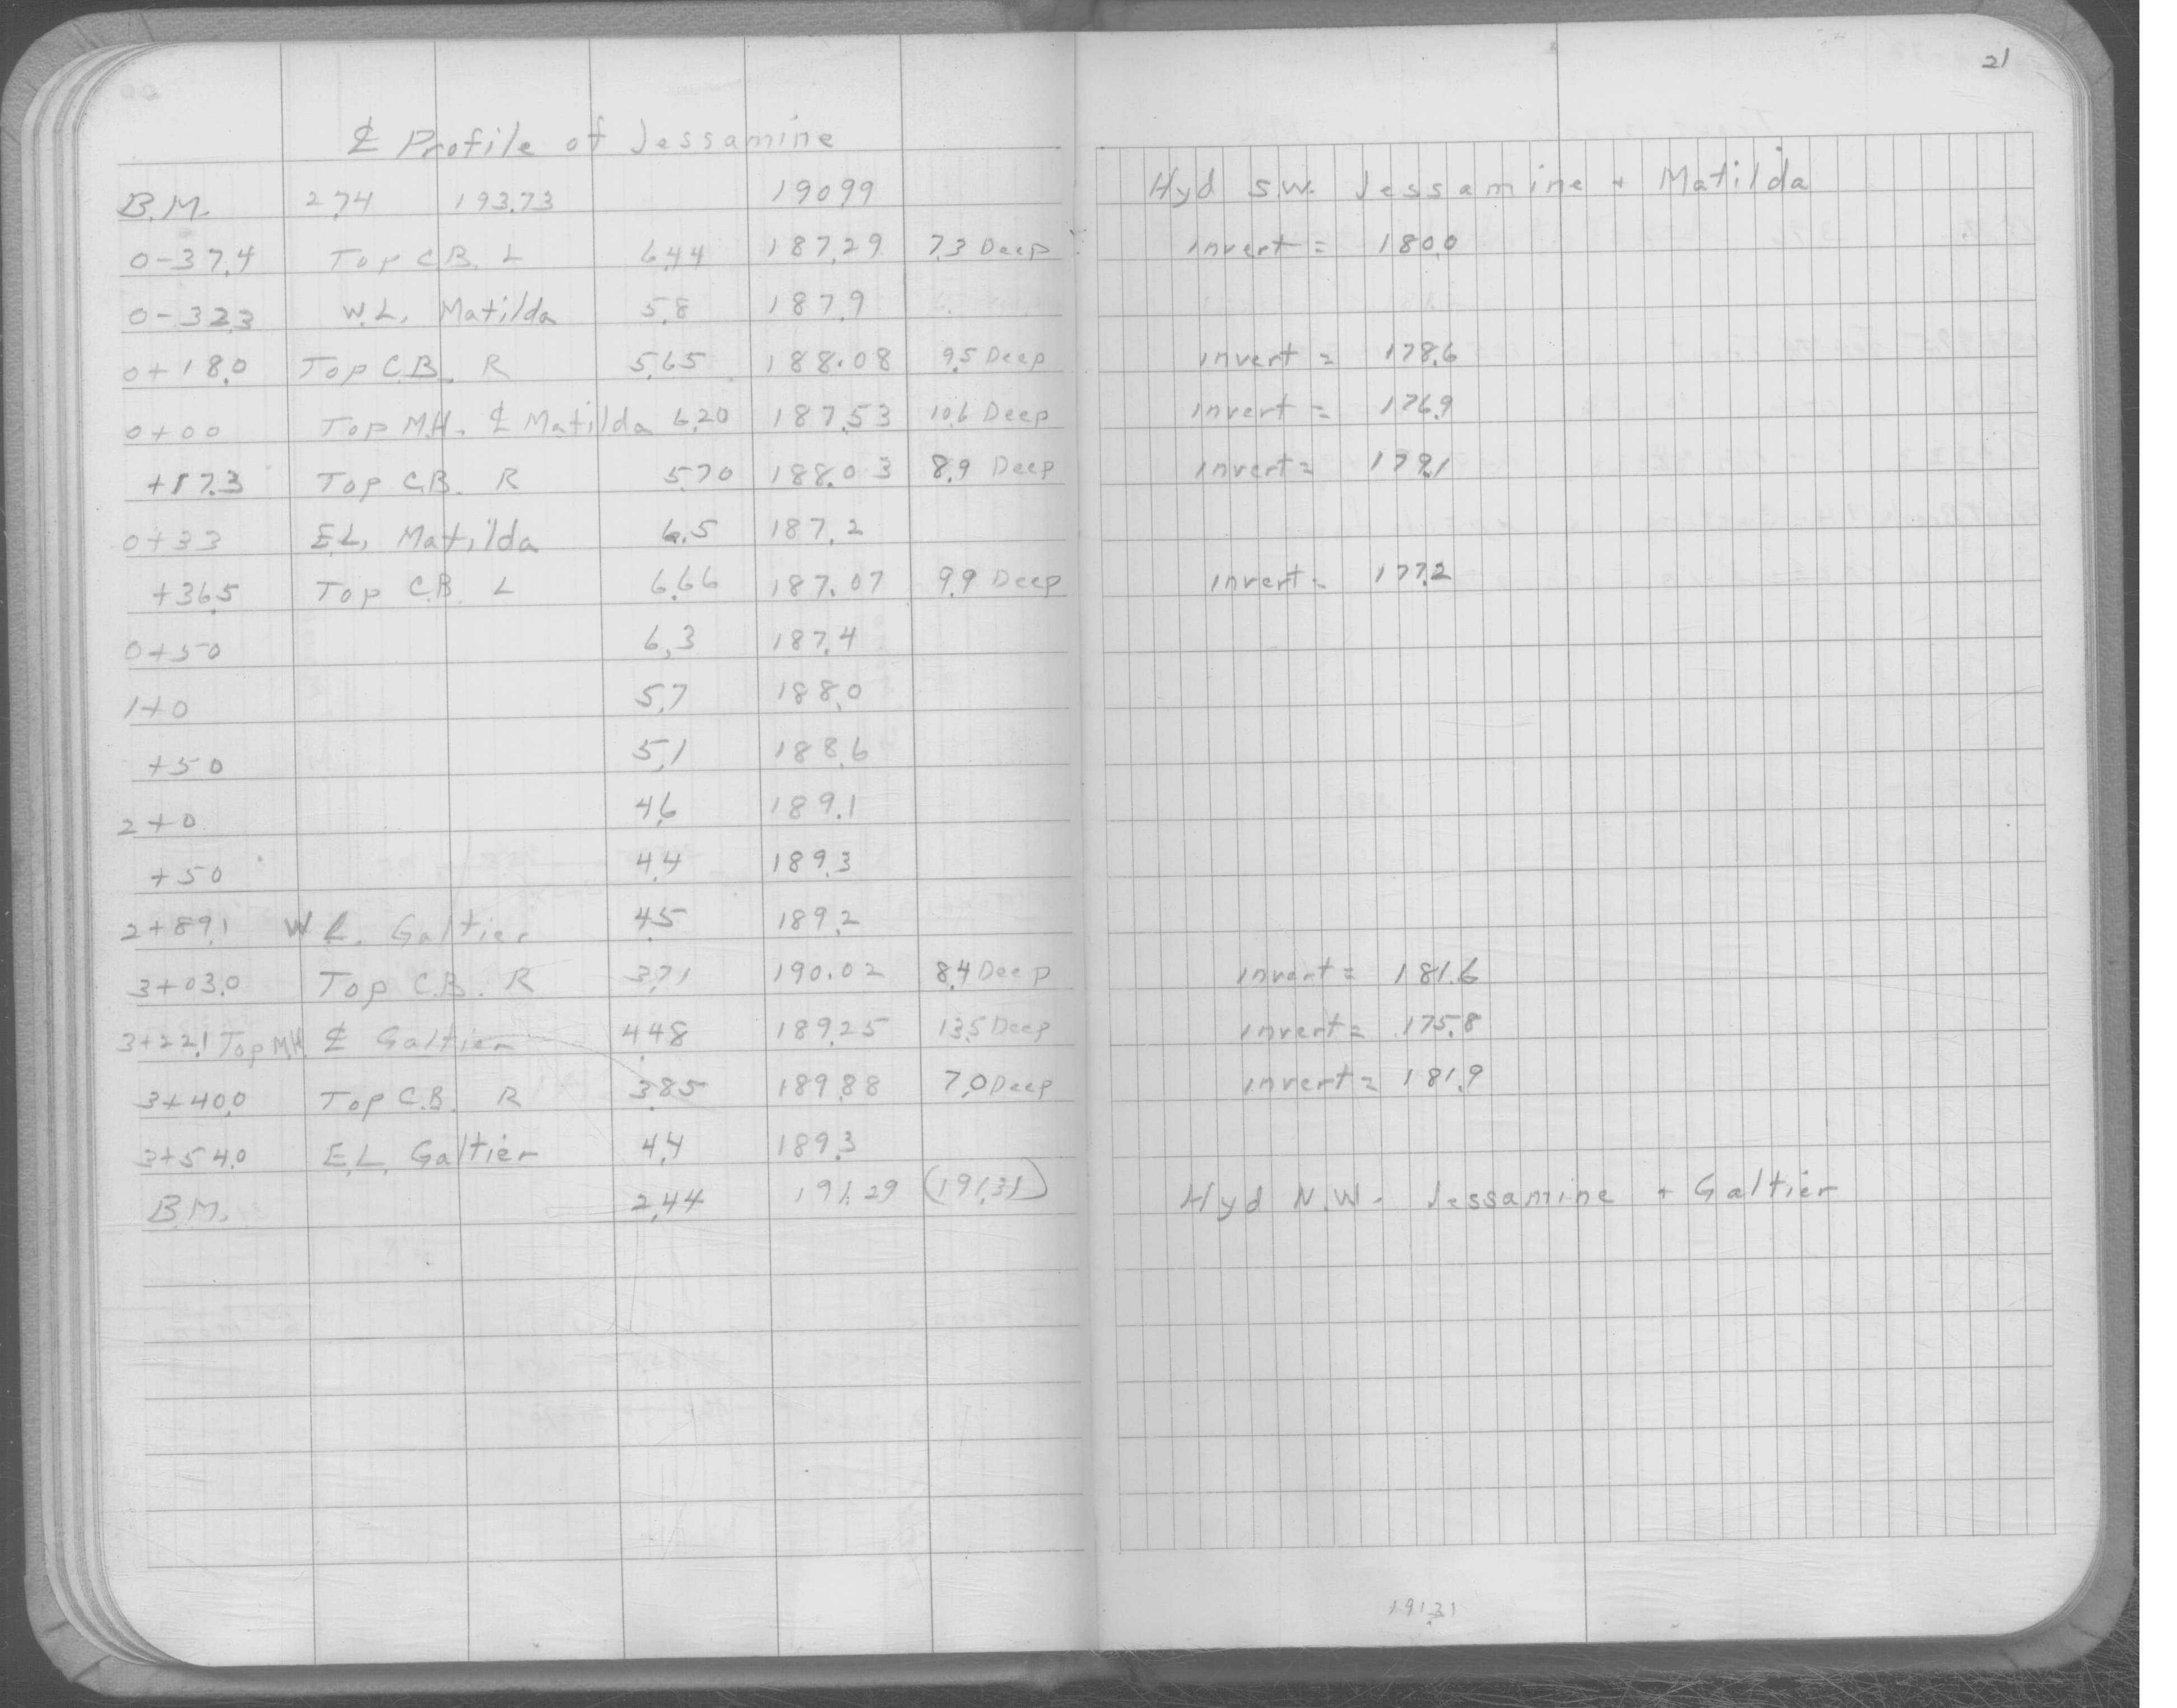 21
℄ Profile of Jessamine
B.M. 2.74 193.73 190.99 Hyd S.W. Jessamine + Matilda
0-37.4 Top C.B. L 6.44 187.29 7.3 Deep invert = 180.0
0-32.3 W.L. Matilda 5.8 187.9
0+18.0 Top C.B. R 5.65 188.08 9.5 Deep invert = 178.6
0+00 Top M.H. ℄ Matilda 6.20 187.53 10.6 Deep invert = 176.9
+17.3 Top C.B. R 5.70 188.03 8.9 Deep invert = 179.1
0+33 E.L. Matilda 6.5 187.2
+36.5 Top C.B. L 6.66 187.07 9.9 Deep invert = 177.2
0+50 6.3 187.4
1+0 5.7 188.0
+50 5.1 188.6
2+0 4.6 189.1
+50 4.4 189.3
2+89.1 W.L. Galtier 4.5 189.2
3+03.0 Top C.B. R 3.71 190.02 8.4 Deep invert = 181.6
3+22.1 Top M.H. ℄ Galtier 4.48 189.25 13.5 Deep invert = 175.8
3+40.0 Top C.B. R 3.85 189.88 7.0 Deep invert = 181.9
3+54.0 E.L. Galtier 4.4 189.3
B.M. 2.44 191.29 (191.31) Hyd N.W. Jessamine + Galtier
191.31